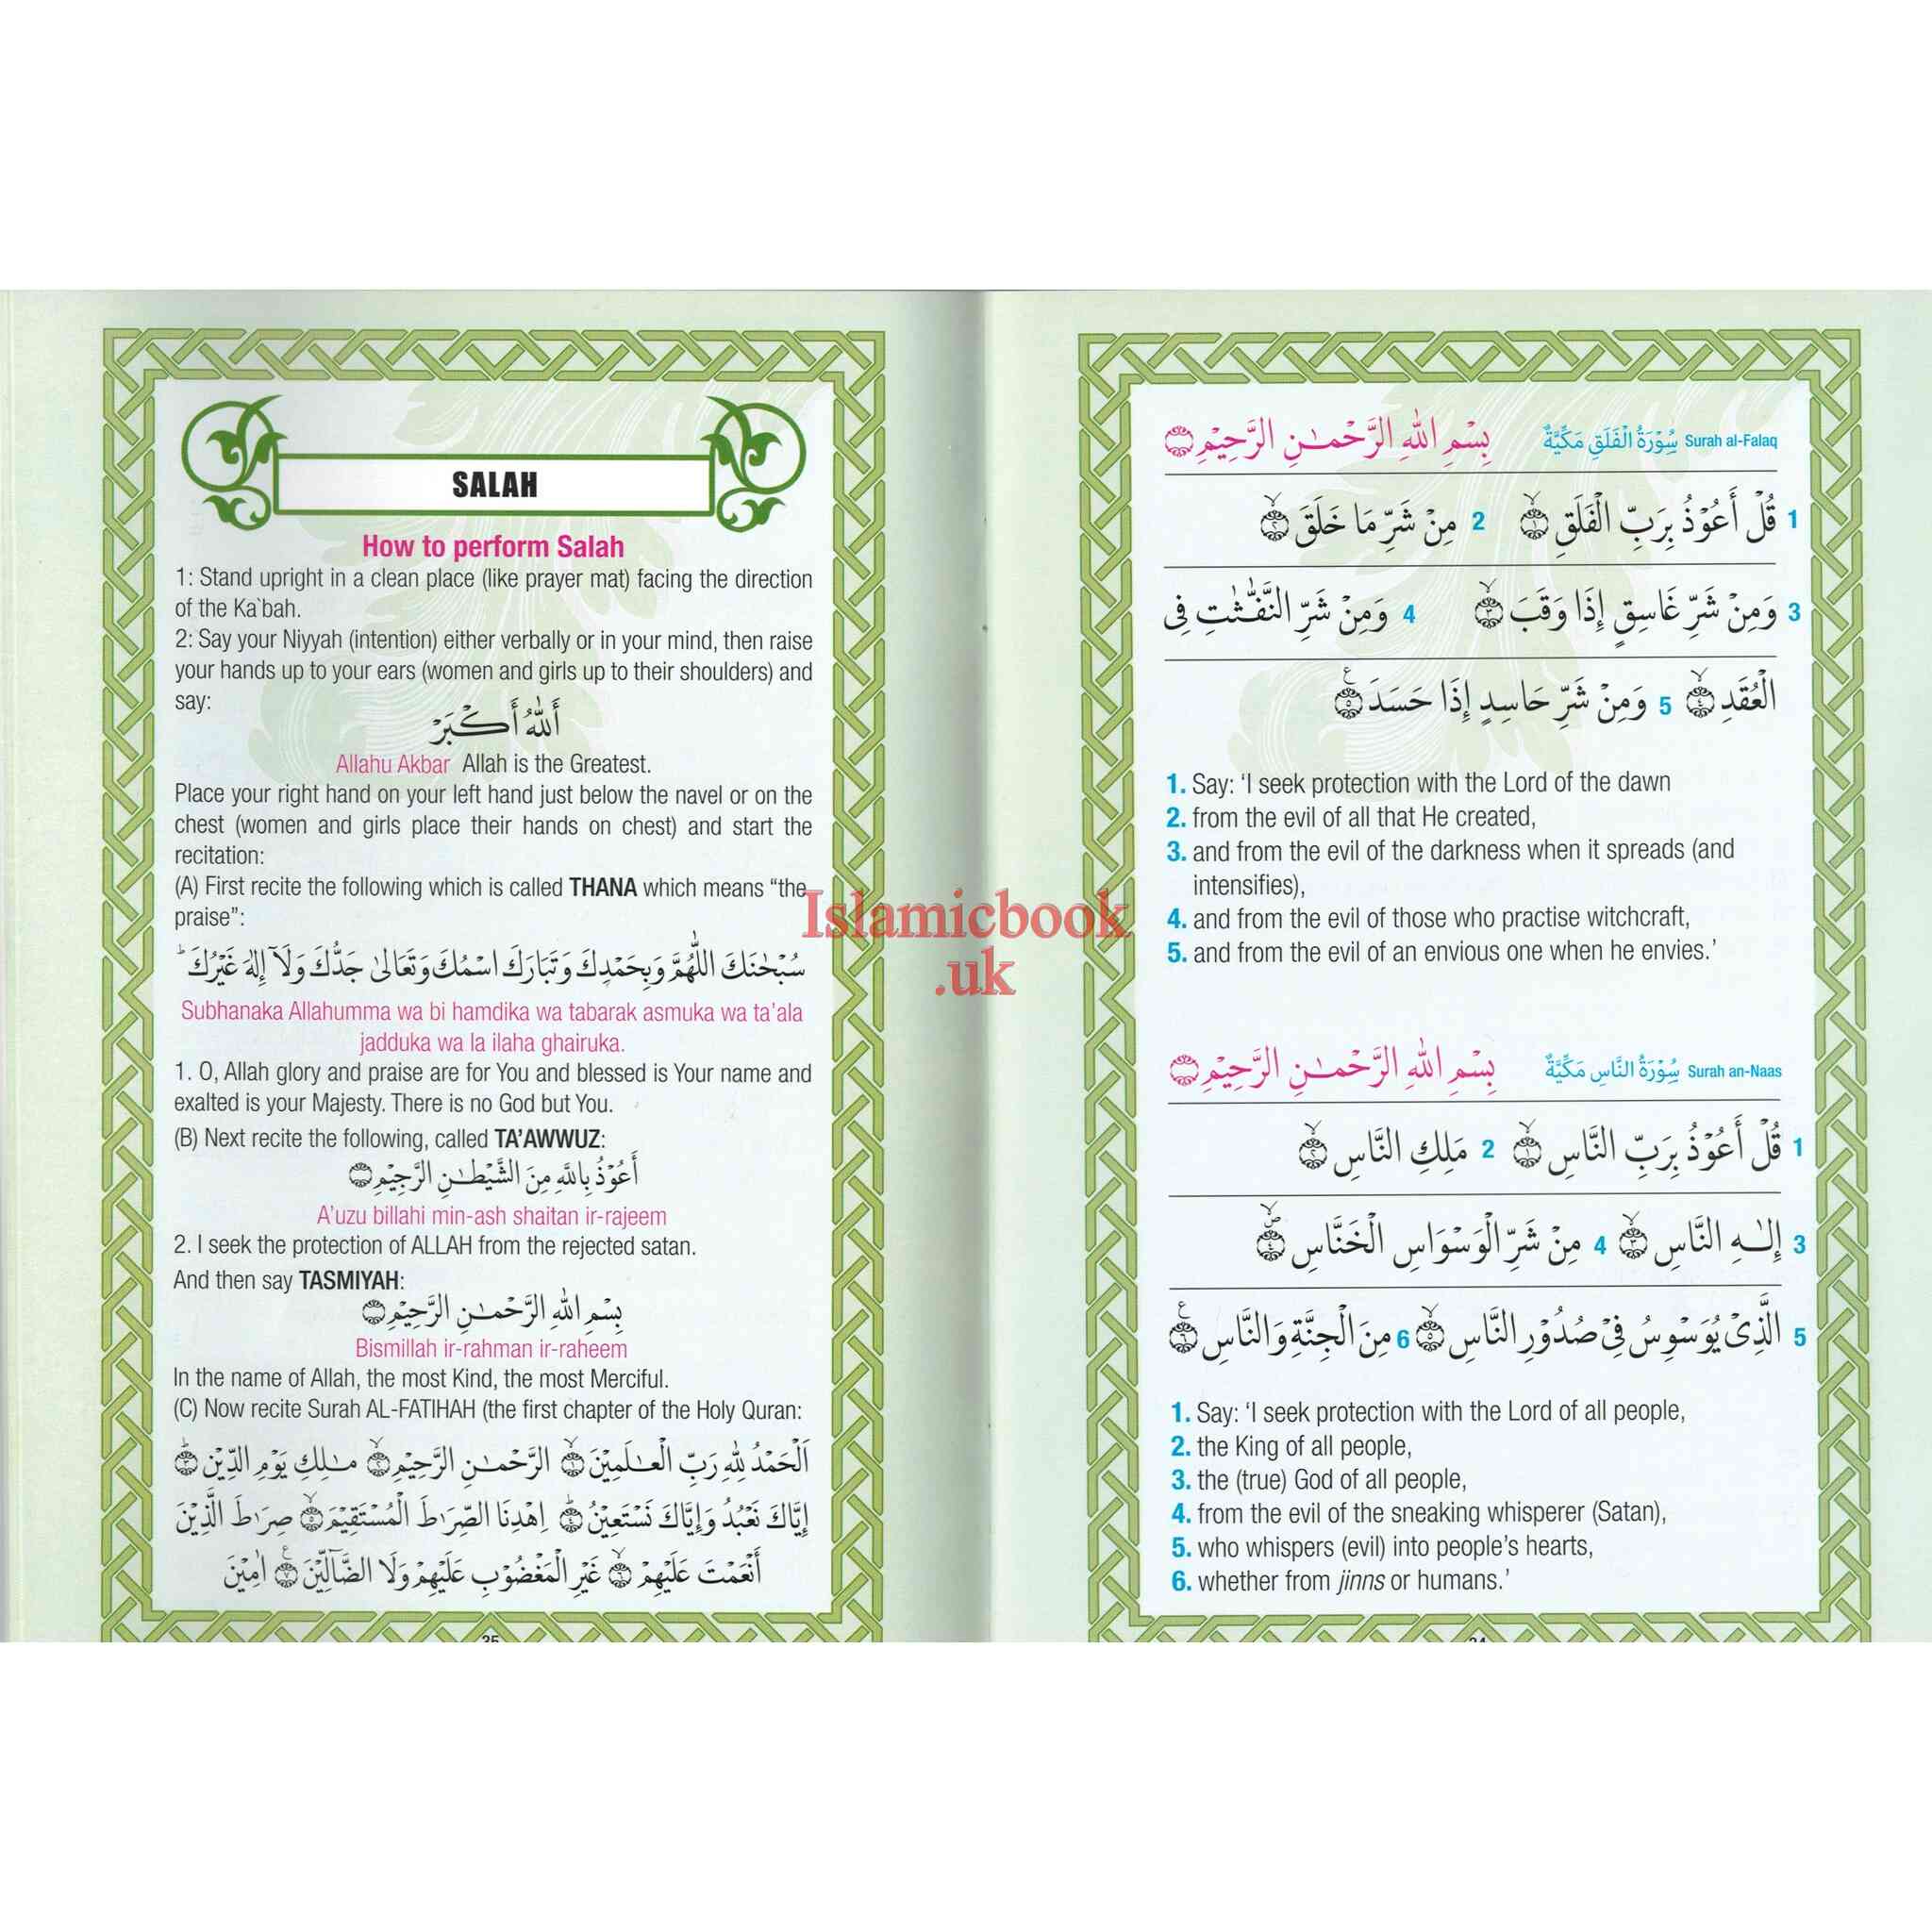 SALAH
How to perform Salah
1: Stand upright in a clean place (like prayer mat) facing the direction
of the Ka`bah.
2: Say your Niyyah (intention) either verbally or in your mind, then raise
your hands up to your ears (women and girls up to their shoulders) and
say:
أَللّٰهُ أَكْبَرْ
Allahu Akbar Allah is the Greatest.
Place your right hand on your left hand just below the navel or on the
chest (women and girls place their hands on chest) and start the
recitation:
(A) First recite the following which is called THANA which means “the
praise”:
سُبْحٰنَكَ اللّٰهُمَّ وَبِحَمْدِكَ وَتَبَارَكَ اسْمُكَ وَتَعَالىٰ جَدُّكَ وَلَآ إِلٰهَ غَيْرُكَ ؕ
Subhanaka Allahumma wa bi hamdika wa tabarak asmuka wa ta’ala
jadduka wa la ilaha ghairuka.
1. O, Allah glory and praise are for You and blessed is Your name and
exalted is your Majesty. There is no God but You.
(B) Next recite the following, called TA’AWWUZ:
أَعُوْذُ بِاللَّهِ مِنَ الشَّيْطٰنِ الرَّجِيْمِ
A’uzu billahi min-ash shaitan ir-rajeem
2. I seek the protection of ALLAH from the rejected satan.
And then say TASMIYAH:
بِسْمِ اللهِ الرَّحْمٰنِ الرَّحِيْمِ
Bismillah ir-rahman ir-raheem
In the name of Allah, the most Kind, the most Merciful.
(C) Now recite Surah AL-FATIHAH (the first chapter of the Holy Quran:
اَلْحَمْدُ لِلّٰهِ رَبِّ الْعٰلَمِيْنَ ۙ﴿١﴾ الرَّحْمٰنِ الرَّحِيْمِ ۙ﴿٢﴾ مٰلِكِ يَوْمِ الدِّيْنِ ؕ﴿٣﴾
إِيَّاكَ نَعْبُدُ وَإِيَّاكَ نَسْتَعِيْنُ ؕ﴿٤﴾ اِهْدِنَا الصِّرَاطَ الْمُسْتَقِيْمَ ۙ﴿٥﴾ صِرَاطَ الَّذِيْنَ
أَنْعَمْتَ عَلَيْهِمْ ۙ﴿٦﴾ غَيْرِ الْمَغْضُوْبِ عَلَيْهِمْ وَلَا الضَّآلِّيْنَ ۧ﴿٧﴾ اٰمِيْنَ
35
Islamicbook
.uk
Surah al-Falaq سُوْرَةُ الْفَلَقِ مَكِّيَّةٌ بِسْمِ اللهِ الرَّحْمٰنِ الرَّحِيْمِ
1 قُلْ أَعُوْذُ بِرَبِّ الْفَلَقِ ۙ﴿١﴾ 2 مِنْ شَرِّ مَا خَلَقَ ۙ﴿٢﴾
3 وَمِنْ شَرِّ غَاسِقٍ إِذَا وَقَبَ ۙ﴿٣﴾ 4 وَمِنْ شَرِّ النَّفّٰثٰتِ فِى
الْعُقَدِ ۙ﴿٤﴾ 5 وَمِنْ شَرِّ حَاسِدٍ إِذَا حَسَدَ ۧ﴿٥﴾
1. Say: ‘I seek protection with the Lord of the dawn
2. from the evil of all that He created,
3. and from the evil of the darkness when it spreads (and
intensifies),
4. and from the evil of those who practise witchcraft,
5. and from the evil of an envious one when he envies.’
Surah an-Naas سُوْرَةُ النَّاسِ مَكِّيَّةٌ بِسْمِ اللهِ الرَّحْمٰنِ الرَّحِيْمِ
1 قُلْ أَعُوْذُ بِرَبِّ النَّاسِ ۙ﴿١﴾ 2 مَلِكِ النَّاسِ ۙ﴿٢﴾
3 إِلٰهِ النَّاسِ ۙ﴿٣﴾ 4 مِنْ شَرِّ الْوَسْوَاسِ الْخَنَّاسِ ﴿٤﴾
5 الَّذِىْ يُوَسْوِسُ فِىْ صُدُوْرِ النَّاسِ ۙ﴿٥﴾ 6 مِنَ الْجِنَّةِ وَالنَّاسِ ۧ﴿٦﴾
1. Say: ‘I seek protection with the Lord of all people,
2. the King of all people,
3. the (true) God of all people,
4. from the evil of the sneaking whisperer (Satan),
5. who whispers (evil) into people’s hearts,
6. whether from jinns or humans.’
34